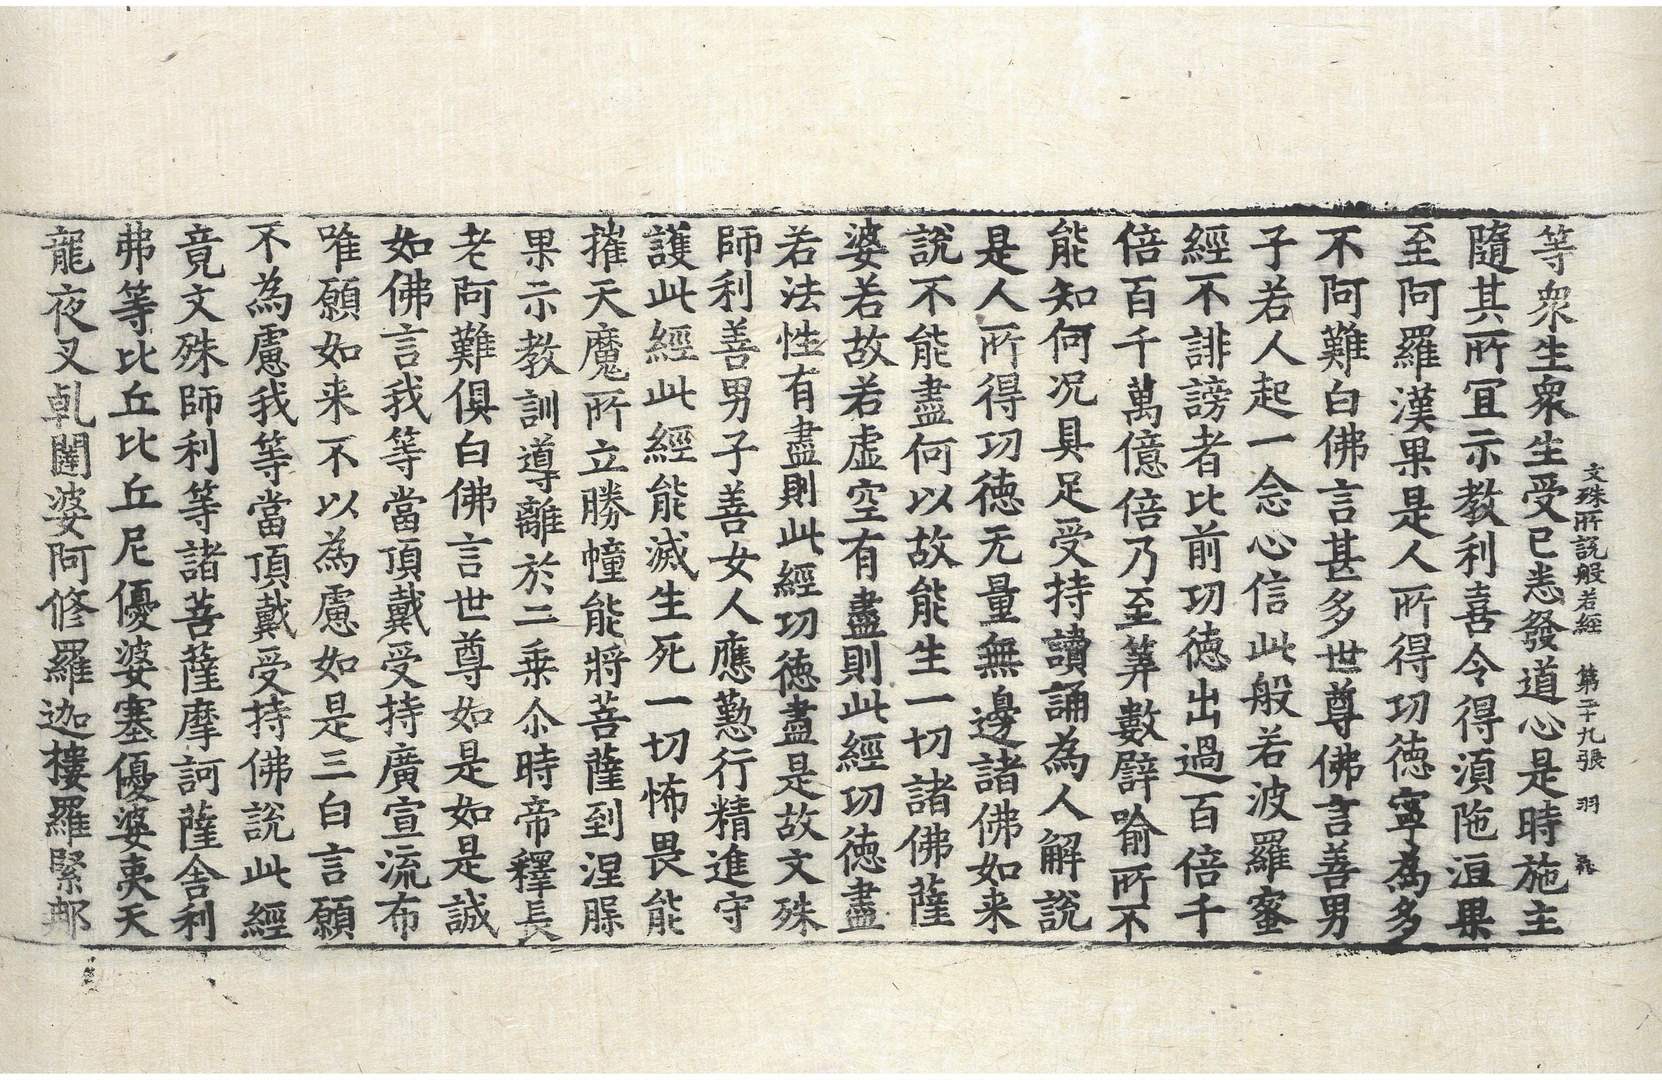 文殊所說般若經 第二十九張 羽
等衆生衆生受已悉發道心是時施主
隨其所冝示教利喜令得湏陁洹果
至阿羅漢果是人所得功徳寧為多
不阿難白佛言甚多世尊佛言善男
子若人起一念心信此般若波羅蜜
經不誹謗者比前功徳出過百倍千
倍百千萬億倍乃至筭數譬喻所不
能知何況具足受持讀誦為人解說
是人所得功徳无量無邊諸佛如来
說不能盡何以故能生一切諸佛薩
婆若故若虛空有盡則此經功徳盡
若法性有盡則此經功徳盡是故文殊
師利善男子善女人應懃行精進守
護此經此經能滅生死一切怖畏能
摧天魔所立勝幢能將菩薩到涅㬸
果示教訓導離於二乗尒時帝釋長
老阿難俱白佛言世尊如是如是誠
如佛言我等當頂戴受持廣宣流布
唯願如来不以為慮如是三白言願
不為慮我等當頂戴受持佛說此經
竟文殊師利等諸菩薩摩訶薩舍利
弗等比丘比丘尼優婆塞優婆夷天
龍夜叉乹闥婆阿修羅迦樓羅緊那